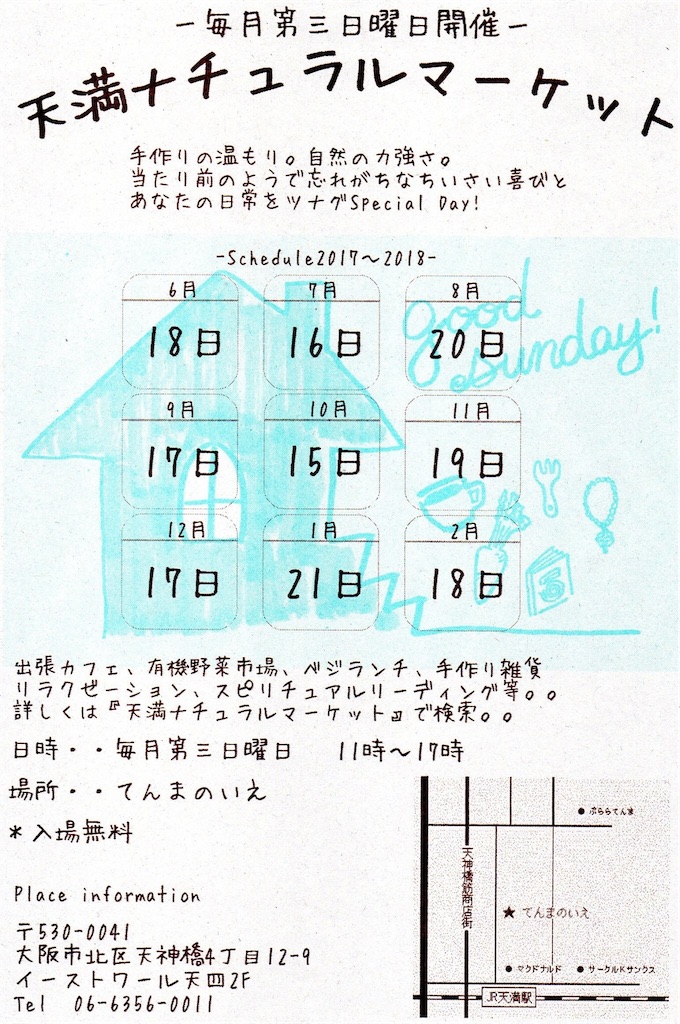 －毎月第三日曜日開催－
天満ナチュラルマーケット
手作りの温もり。自然の力強さ。
当たり前のようで忘れがちなちいさい喜びと
あなたの日常をツナグSpecial Day!
-Schedule2017～2018-
6月 7月 8月
18日 16日 20日
good
Sunday!
9月 10月 11月
17日 15日 19日
12月 1月 2月
17日 21日 18日
出張カフェ、有機野菜市場、ベジランチ、手作り雑貨
リラクゼーション、スピリチュアルリーディング等。。
詳しくは『天満ナチュラルマーケット』で検索。。
日時・・毎月第三日曜日 11時～17時
場所・・てんまのいえ
*入場無料
Place information
〒530-0041
大阪市北区天神橋4丁目12-9
イーストワール天四2F
Tel 06-6356-0011
● ぷららてんま
天神橋筋商店街
★ てんまのいえ
● マクドナルド ● サークルKサンクス
JR天満駅